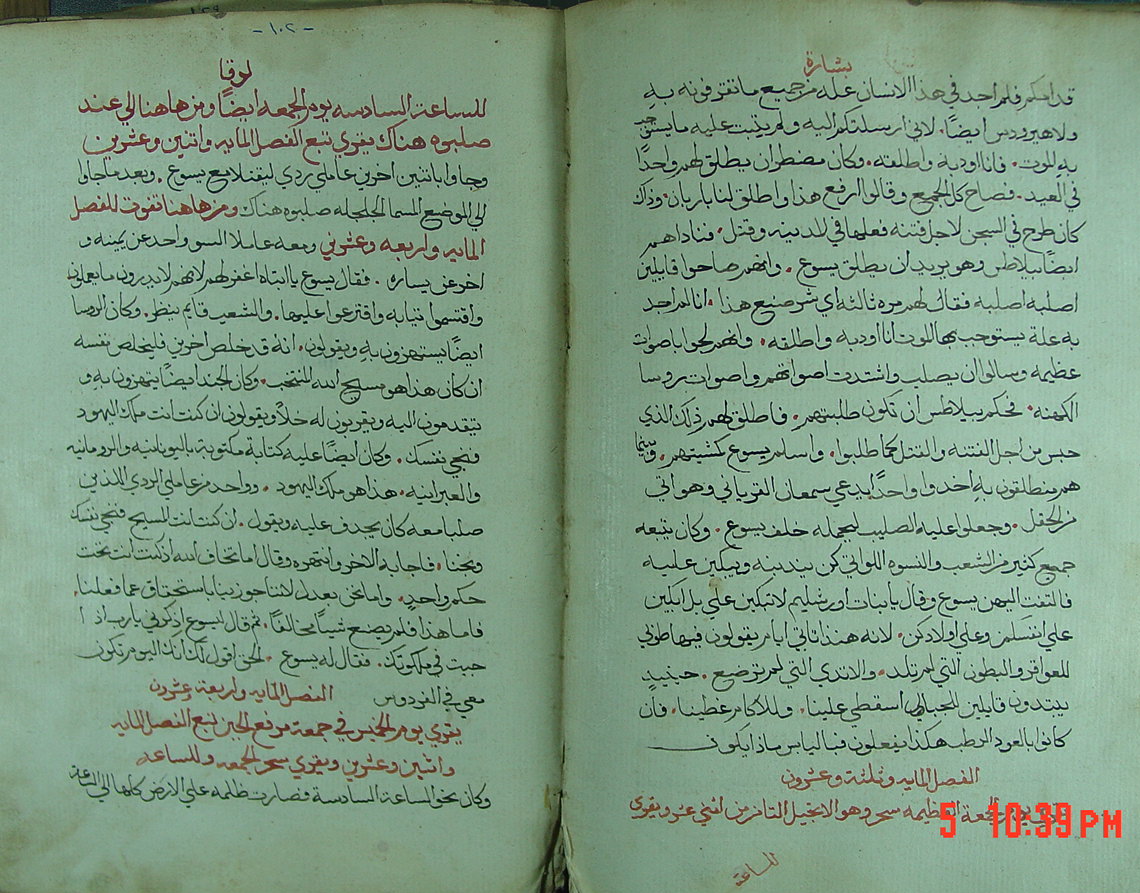 بشارة
قدامكم فلم احد في هذا الانسان علة من جميع ما تقرفونه به
ولا هيرودس ايضا. لاني ارسلتكم اليه ولم يثبت عليه ما يستوجب
به الموت. فانا اودبه واطلقه. وكان مضطرا ان يطلق لهم واحدًا
في العيد. فصاح كل الجميع وقالوا ارفع هذا واطلق لنا باربان. وذاك
كان طرح في السجن لاجل فتنة فعلها في المدينة وقتل. فناداهم
ايضًا بيلاطس وهو يريد ان يطلق يسوع. وانهم صاحوا قايلين
اصلبه اصلبه فقال لهم مرة ثالثة اي شر صنيع هذا. انا لم اجد
به علة يستوجب بها الموت انا اودبه واطلقه. وانهم لحوا باصوات
عظيمه وسالوا ان يصلب واشتدت اصواتهم واصوات روسا
الكهنه. فحكم بيلاطس ان تكون طلبتهم. فاطلق لهم ذلك الذي
حبس من اجل الفتنه والقتل كما طلبوا. واسلم يسوع كمشيتهم. وبينما
هم منطلقون به اخدوا واحدًا يدعي سمعان القرياني وهو اتي
من الحقل. وجعلوا عليه الصليب ليحمله خلف يسوع. وكان يتبعه
جمع كثير من الشعب والنسوه اللواتي كن يندبنه ويبكين عليه
فالتفت اليهن يسوع وقال يا بنات اورشليم لا تبكين علي بل ابكين
علي انفسكن وعلي اولادكن. لانه هندا تاتي ايام يقولون فيها طوبي
للعواقر والبطون التي لم تلد. والاثدي التي لم ترضع. حينيدٍ
يبتدون قايلين للجبال اسقطي علينا. وللاكام غطينا. فان
كانوا بالعود الرطب هكذا يفعلون فباليابس ماذا يكون
الفصل المايه وثلثة وعشرون
يقري يوم الجمعة العظيمه سحر وهو الانجيل الثامن من اثني عشر ويقري
للساعة
-١٠٢-
لوقا
للساعة السادسه يوم الجمعه ايضًا ومن هاهنا الي عند
صلبوه هناك يقري تبع الفصل المايه واثنين وعشرين
وجاوا باثنين اخرين عاملي ردي ليقتلا مع يسوع. وبعد ما جاوا
الي الموضع المسما الجلجله صلبوه هناك ومن هاهنا تفوت للفصل
المايه واربعه وعشرين ومعه عاملا السو واحد عن يمينه و
اخر عن يساره. فقال يسوع يا ابتاه اغفر لهم لانهم لا يدرون ما يعملون
واقتسموا ثيابه واقترعوا عليها. والشعب قايم ينظر. وكان الروسا
ايضًا يستهزون به ويقولون. انه قد خلص اخرين فليخلص نفسه
ان كان هذا هو مسيح الله المنتخب. وكان الجند ايضًا يتهزون به و
يتقدمون اليه ويقربون له خلًا ويقولون ان كنت انت ملك اليهود
فنجي نفسك. وكان ايضًا عليه كتابة مكتوبة باليونانيه والرومانيه
والعبرانيه. هذا هو ملك اليهود. وواحد من عاملي الردي اللذين
صلبا معه كان يجدف عليه ويقول. ان كنت انت المسيح فنجي نفسك
ونجنا. فاجابه الاخر وانتهره وقال اما تخاف الله اذ كنت انت تحت
حكم واحدٍ. واما نحن بعدل لاننا جوزينا باستحقاق عما فعلنا.
فاما هذا فلم يصنع شيًا مخالفًا. ثم قال ليسوع اذكرني يا رب اذا
جيت في ملكوتك. فقال له يسوع. الحق اقول لك انك اليوم تكون
معي في الفردوس الفصل المايه واربعة وعشرون
يقري يوم الخميس في جمعة مرفع الجبن تبع الفصل المايه
واثنين وعشرين ويقري سحر الجمعه وللساعه
وكان نحو الساعة السادسة فصارت ظلمه علي الارض كلها الي الساعة
5 10:39 PM